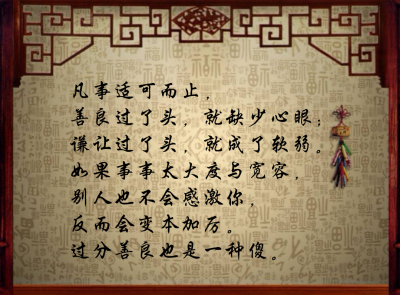 凡事适可而止，
善良过了头，就缺少心眼；
谦让过了头，就成了软弱。
如果事事太大度与宽容，
别人也不会感激你，
反而会变本加厉。
过分善良也是一种傻。